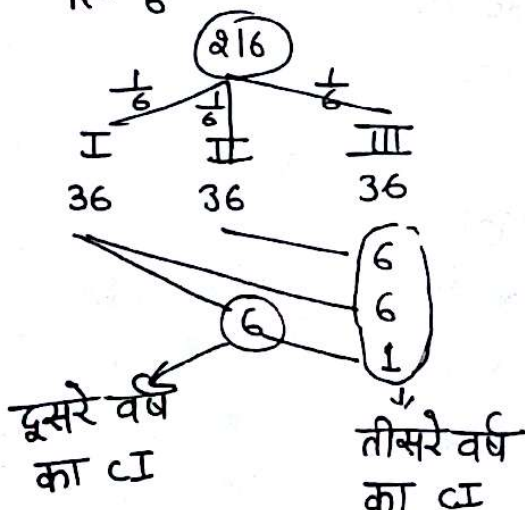 216
1/6 1/6 1/6
I II III
36 36 36
6
6
6 1
दूसरे वर्ष
का CI
तीसरे वर्ष
का CI